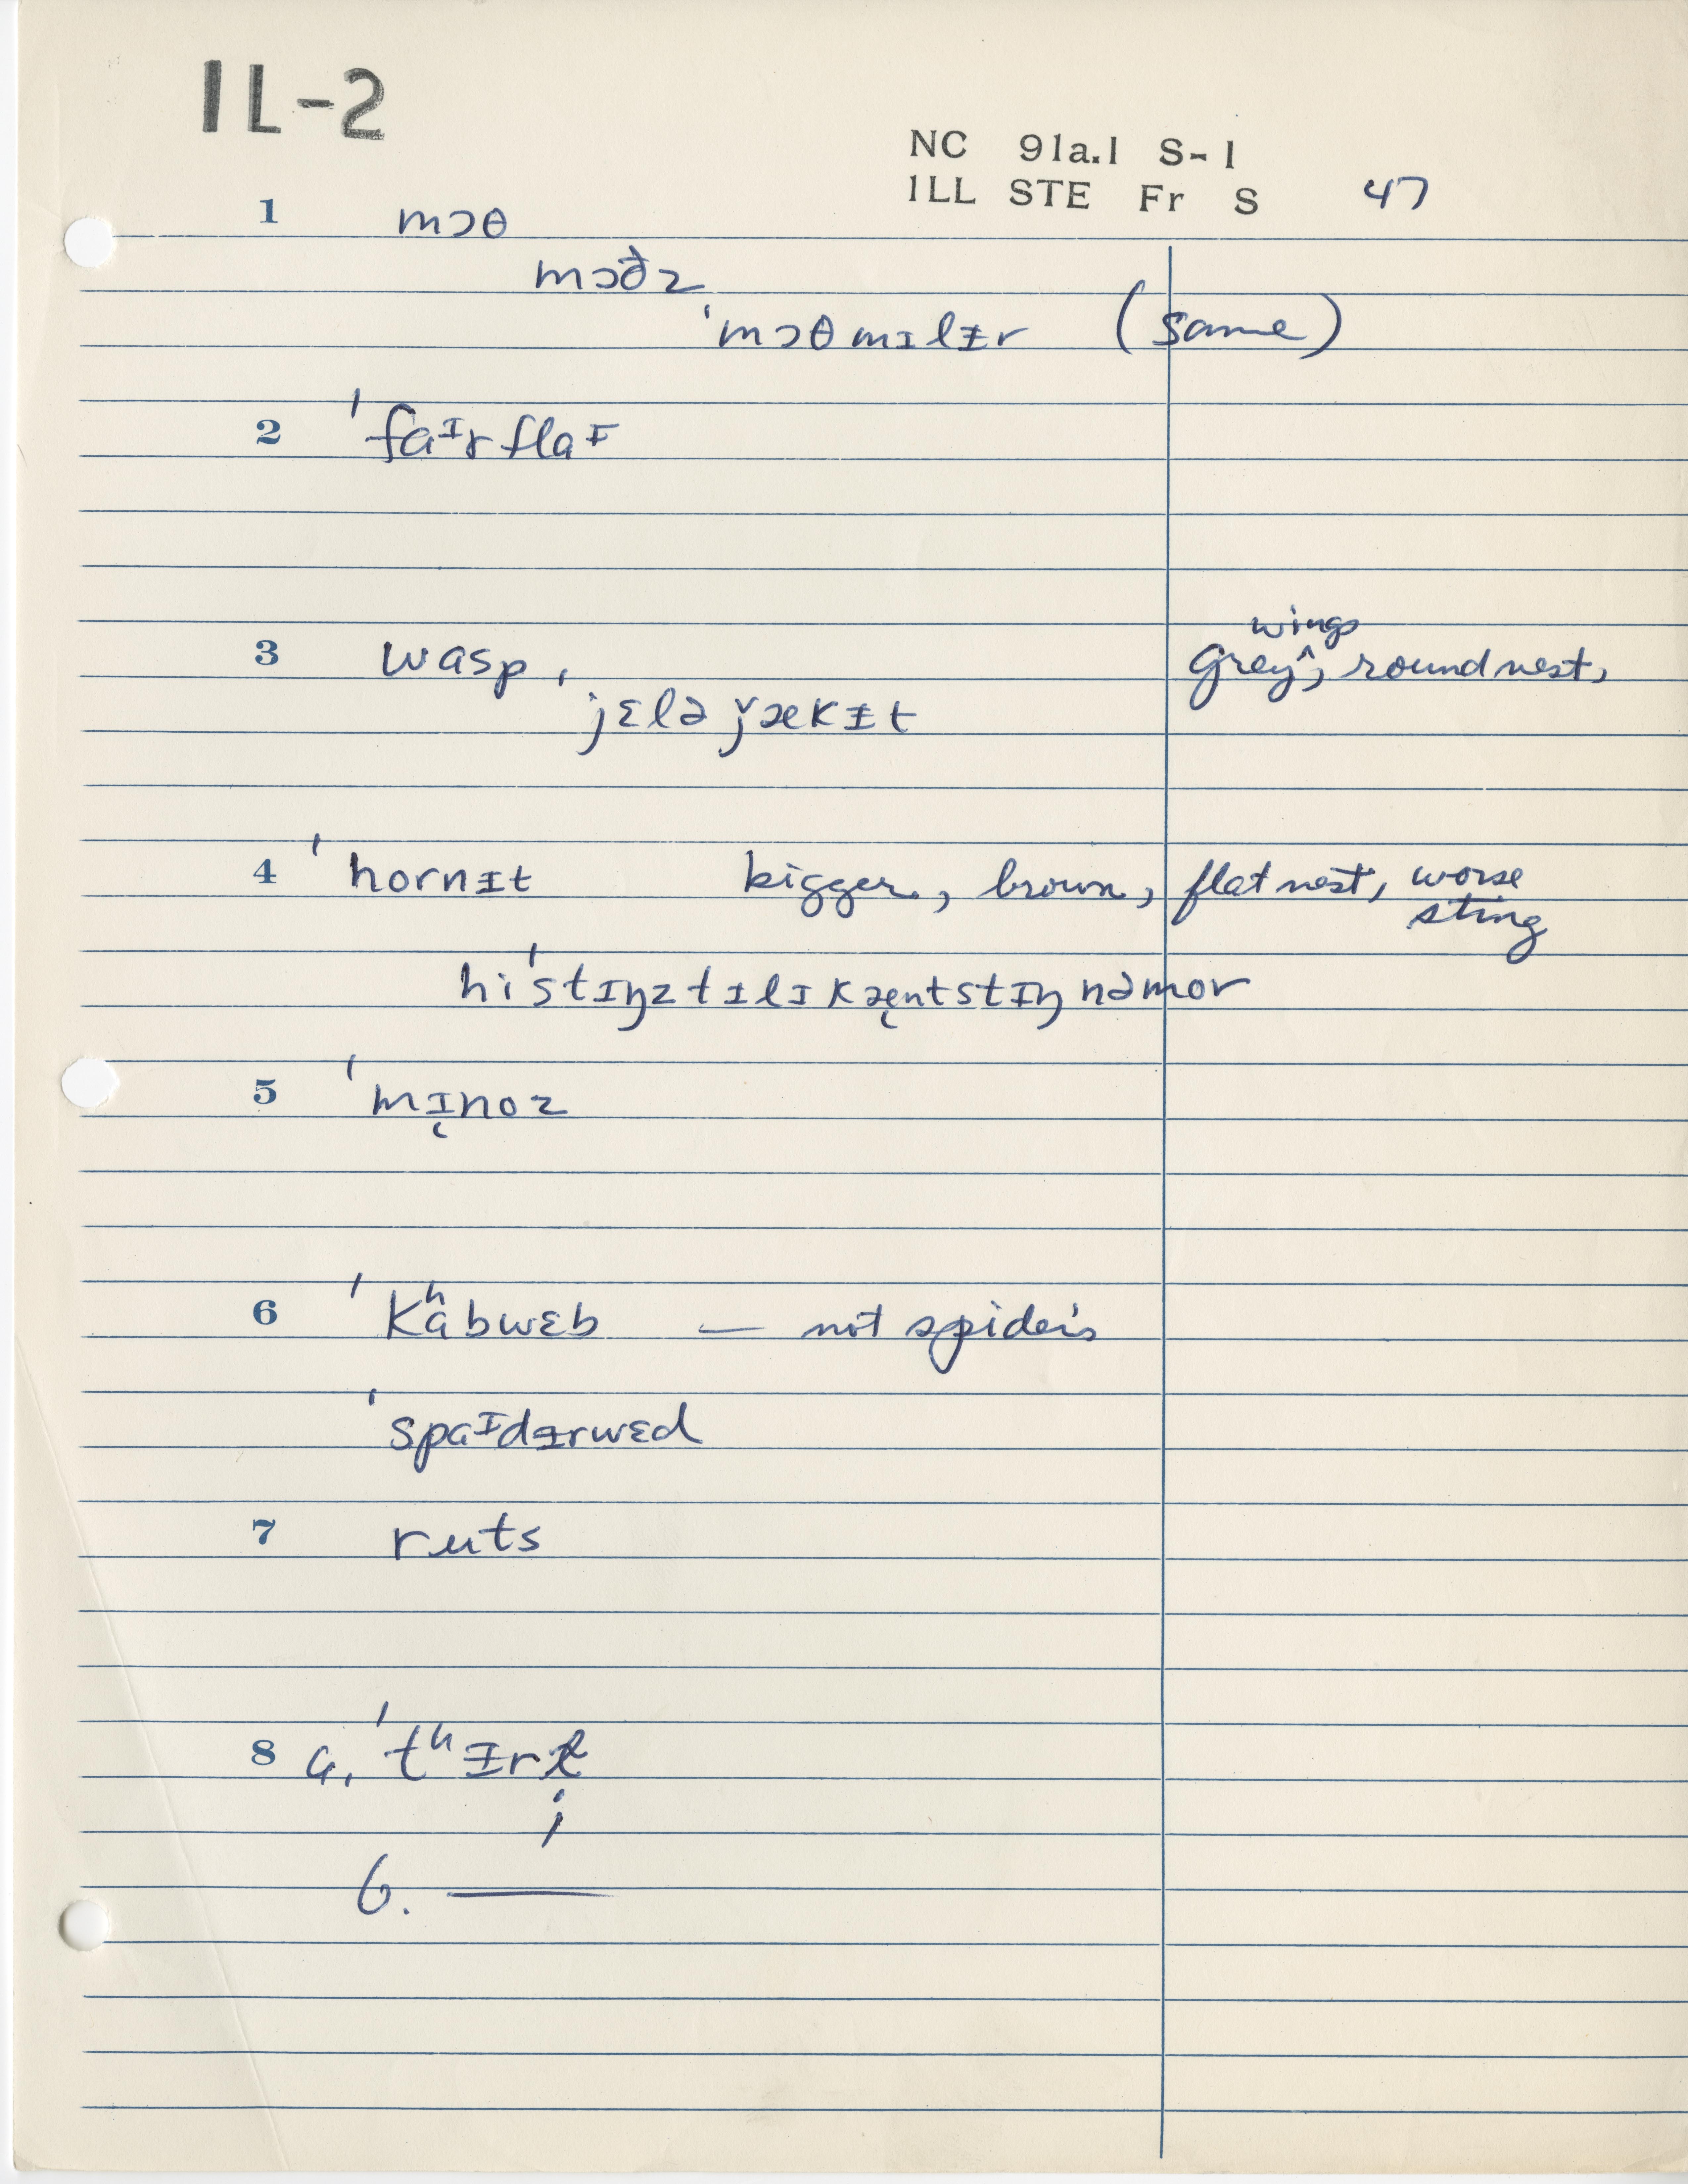 IL-2
NC 91a.1 S-1
ILL STE Fr S 47
1 mɔθ
mɔðz
ˈmɔθmɪlɨr (same)
2 ˈfaᴵrflaᴵ
wings
3 wasp, grey^, round nest,
jɛlə ǰækɨt
4 ˈhornɨt bigger, brown, flat nest, worse
sting
hiˈstɪŋztɪlɪkæ̨ntstɪŋnəmor
5 ˈmɪ̨noz
6 ˈkʰabwɛb — not spider's
ˈspaᴵdɨrwɛd
7 ruts
8 a. ˈtʰɨr
b. ———